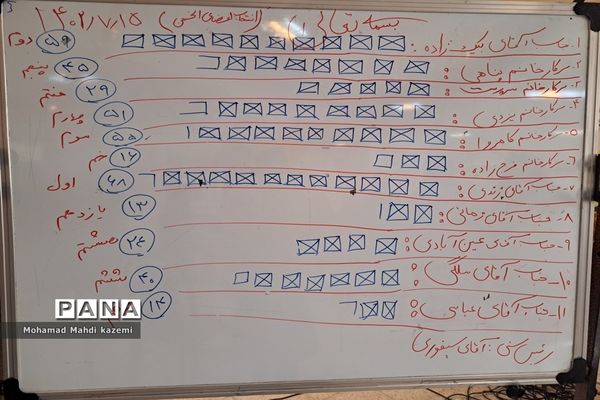 بسمه تعالی ۱۴۰۲/۷/۱۵
۱- جناب آقای نیک زاده: ۵۹ دوم
۲- سرکار خانم پناهی: ۴۵ پنجم
۳- سرکار خانم سرپرست: ۲۹ هفتم
۴- سرکار خانم یزدی: ۵۱ چهارم
۵- سرکار خانم کامروا: ۵۵ سوم
۶- سرکار خانم فرخ زاده: ۱۶ نهم
۷- جناب آقای زندی: ۶۸ اول
۸- جناب آقای زمانی: ۱۳ یازدهم
۹- جناب آقای عین آبادی: ۲۴ هشتم
۱۰- جناب آقای ملکی: ۴۰ ششم
۱۱- جناب آقای عباسی: ۱۴
رئیس سنی: آقای سیفوری
PANA
Mohamad Mahdi kazemi